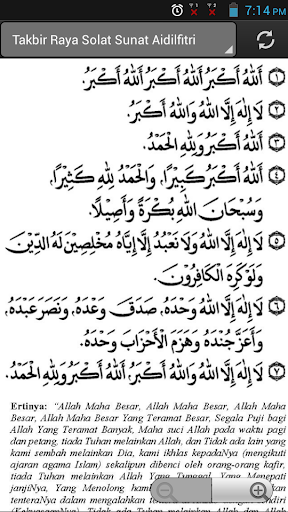 7:14 PM
Takbir Raya Solat Sunat Aidilfitri
١ اَللّٰهُ أَكْبَرُ اَللّٰهُ أَكْبَرُ اَللّٰهُ أَكْبَرُ.
٢ لَا إِلٰهَ إِلَّا اللّٰهُ وَاللّٰهُ أَكْبَرُ.
٣ اَللّٰهُ أَكْبَرُ وَلِلّٰهِ الْحَمْدُ.
٤ اَللّٰهُ أَكْبَرُ كَبِيْرًا، وَالْحَمْدُ لِلّٰهِ كَثِيْرًا،
وَسُبْحَانَ اللّٰهِ بُكْرَةً وَأَصِيْلًا.
٥ لَا إِلٰهَ إِلَّا اللّٰهُ وَلَا نَعْبُدُ إِلَّا إِيَّاهُ مُخْلِصِيْنَ لَهُ الدِّيْنَ
وَلَوْ كَرِهَ الْكَافِرُوْنَ.
٦ لَا إِلٰهَ إِلَّا اللّٰهُ وَحْدَهُ، صَدَقَ وَعْدَهُ، وَنَصَرَ عَبْدَهُ،
وَأَعَزَّ جُنْدَهُ وَهَزَمَ الْأَحْزَابَ وَحْدَهُ.
٧ لَا إِلٰهَ إِلَّا اللّٰهُ وَاللّٰهُ أَكْبَرُ، اَللّٰهُ أَكْبَرُ وَلِلّٰهِ الْحَمْدُ.
Ertinya: "Allah Maha Besar, Allah Maha Besar, Allah Maha
Besar, Allah Maha Besar Yang Teramat Besar, Segala Puji bagi
Allah Yang Teramat Banyak, Maha suci Allah pada waktu pagi
dan petang, tiada Tuhan melainkan Allah, dan Tidak ada lain yang
kami sembah melainkan Dia, kami ikhlas kepadaNya (mengikuti
ajaran agama Islam) sekalipun dibenci oleh orang-orang kafir,
tiada Tuhan melainkan Allah Yang
janjiNya, Yang Menolong
tenteraNya dalam mengalahkan